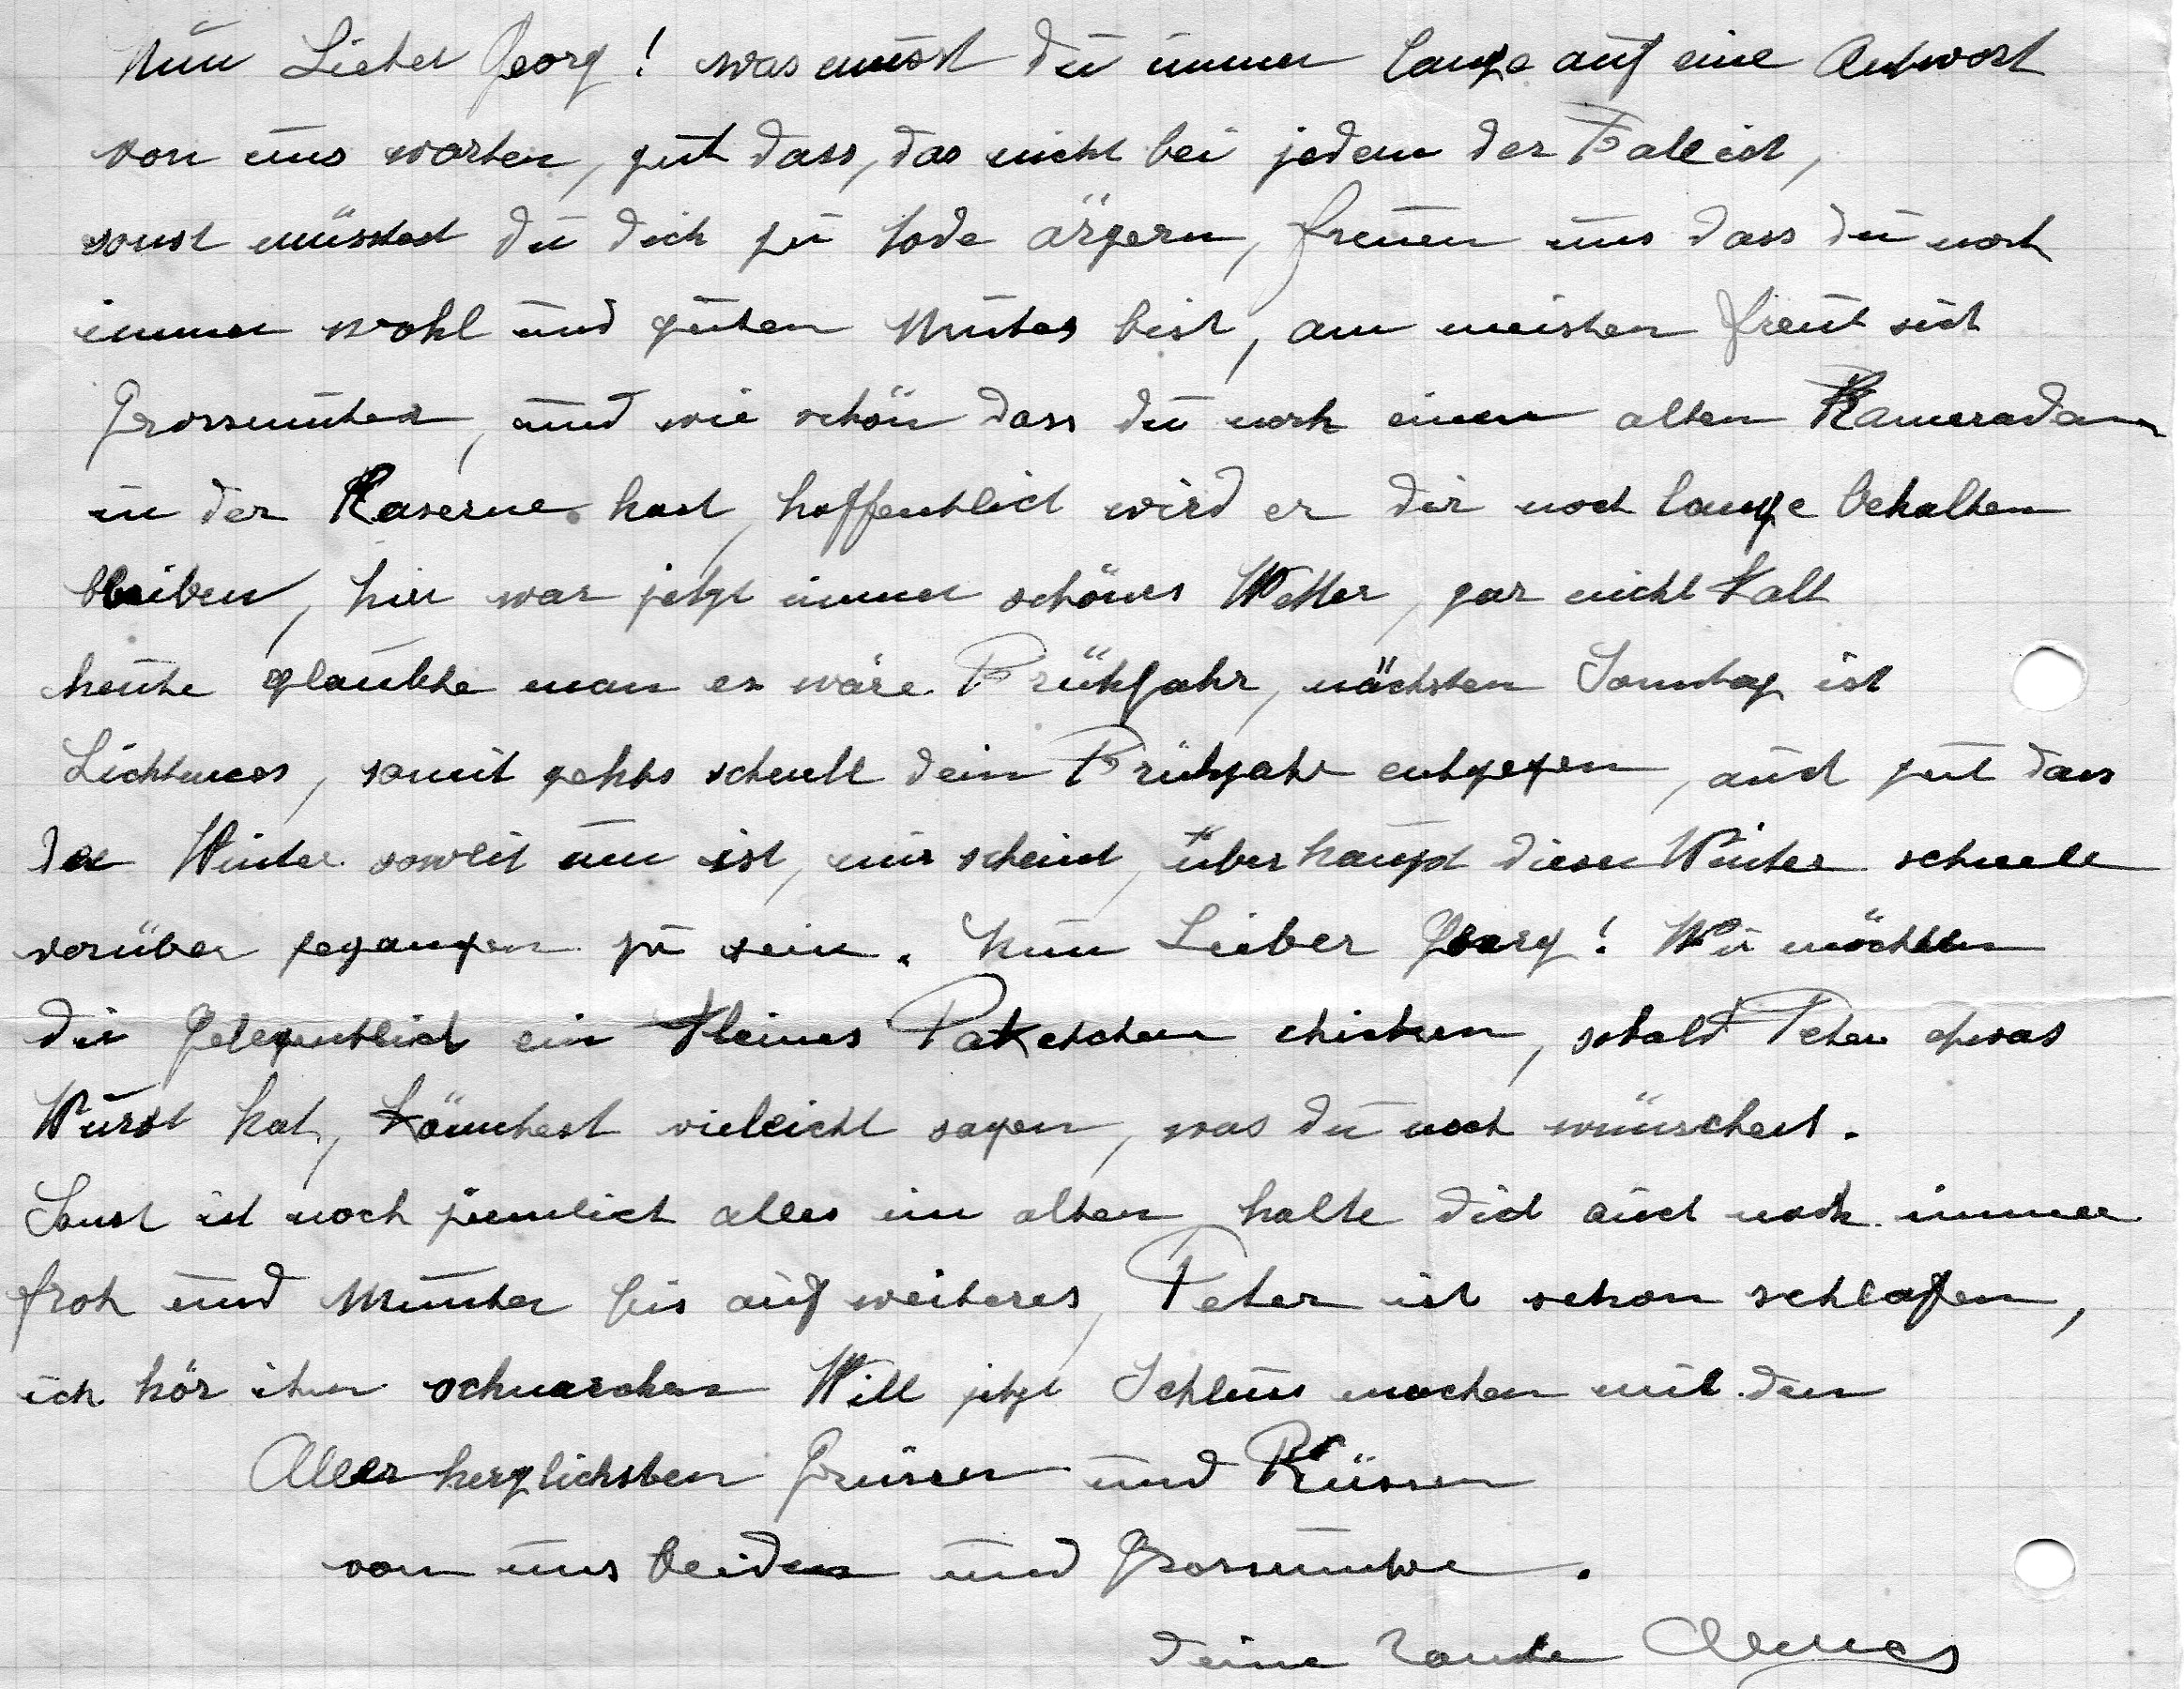 Nun Lieber Georg! was musst du immer lange auf eine Antwort
von uns warten, gut dass, das nicht bei jedem der Fall ist,
sonst müsstest du dich zu tode ärgern, freuen uns dass du noch
immer wohl und guten Mutes bist, am meisten freut sich
Grossmutter, und wie schön dass du noch einen alten Kameraden
in der Kaserne hast, hoffentlich wird er dir noch lange behalten
bleiben, hier war jetzt immer schönes Wetter, gar nicht kalt
heute glaubte man es wäre Frühjahr, nächsten Sonntag ist
Lichtmess, somit gehts schnell dem Frühjahr entgegen, auch gut dass
der Winter soweit um ist, mir scheint, überhaupt dieser Winter schnell
vorüber gegangen zu sein. Nun Lieber Georg! Wir möchten
dir Gelegentlich ein kleines Paketchen chicken, sobald Peter etwas
Wurst hat, könntest vieleicht sagen, was du noch wünschest.
Sonst ist noch ziemlich alles im alten, halte dich auch noch immer
froh und Munter bis auf weiteres, Peter ist schon schlafen,
ich hör ihn schnarchen Will jetzt Schluss machen mit den
Allerherzlichsten Grüssen und Küssen
von uns beiden und Grossmutter.
deine Tante Agnes